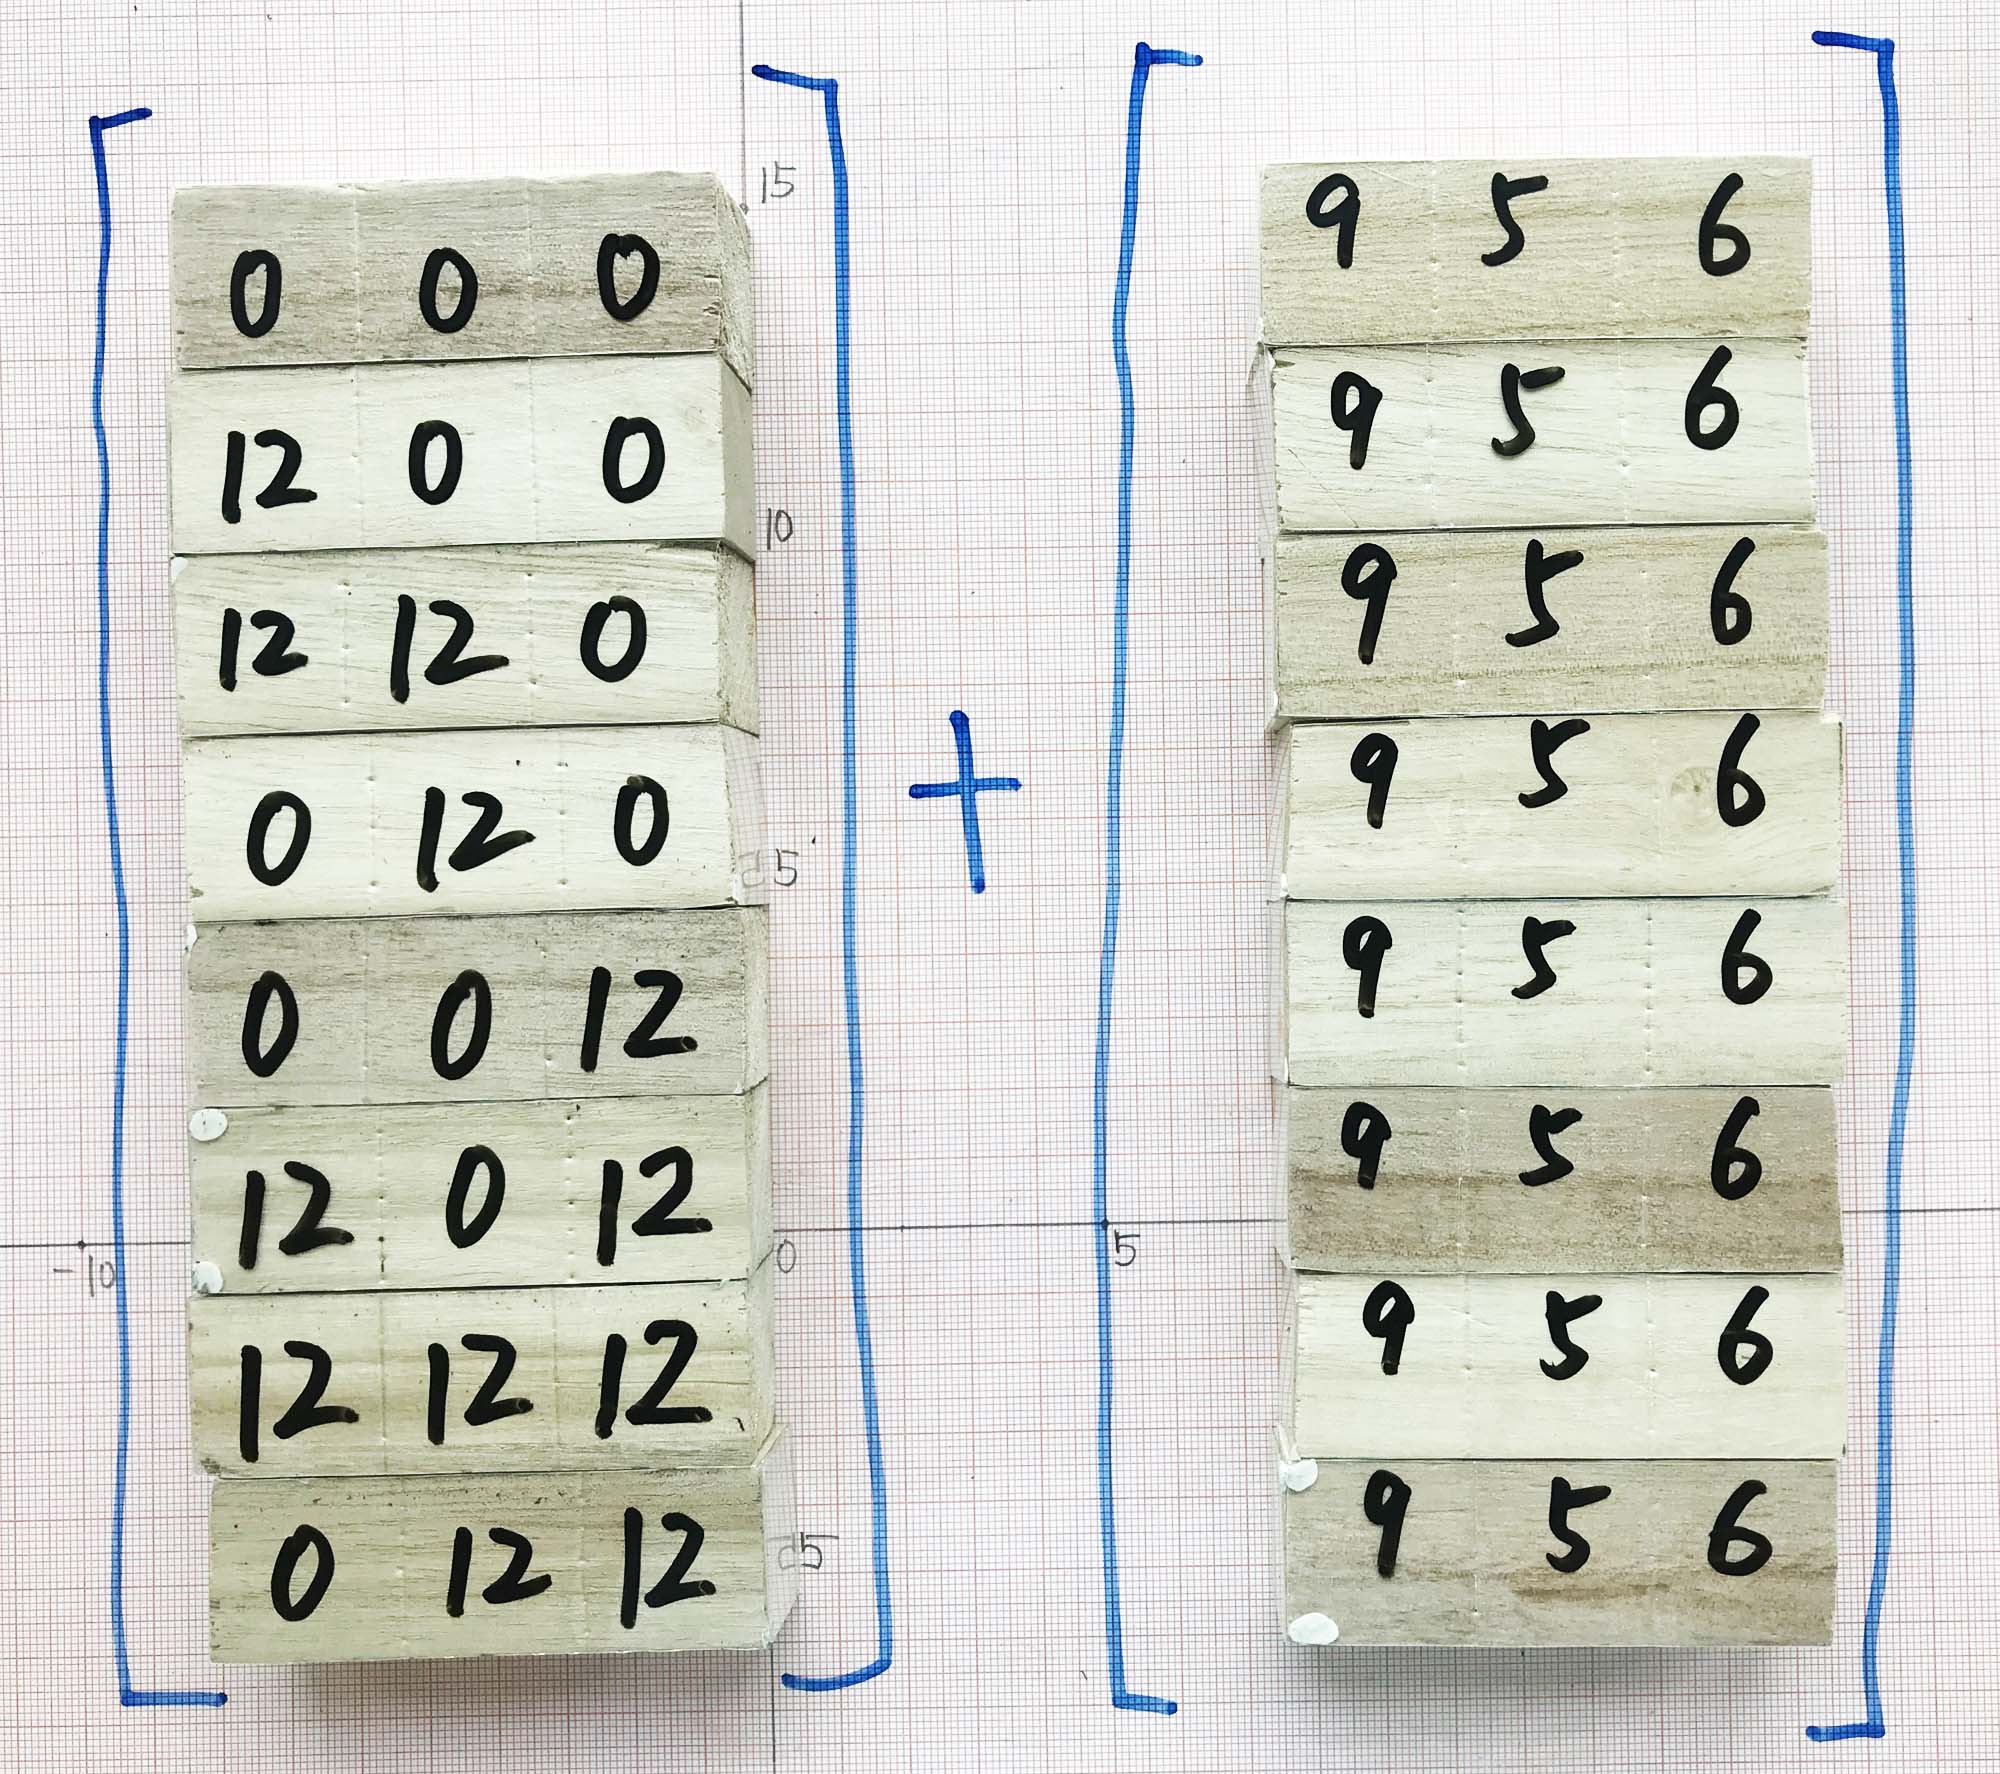 0 0 0
12 0 0
12 12 0
0 12 0
0 0 12
12 0 12
12 12 12
0 12 12
+
9 5 6
9 5 6
9 5 6
9 5 6
9 5 6
9 5 6
9 5 6
9 5 6
15
10
5
-10
0
5